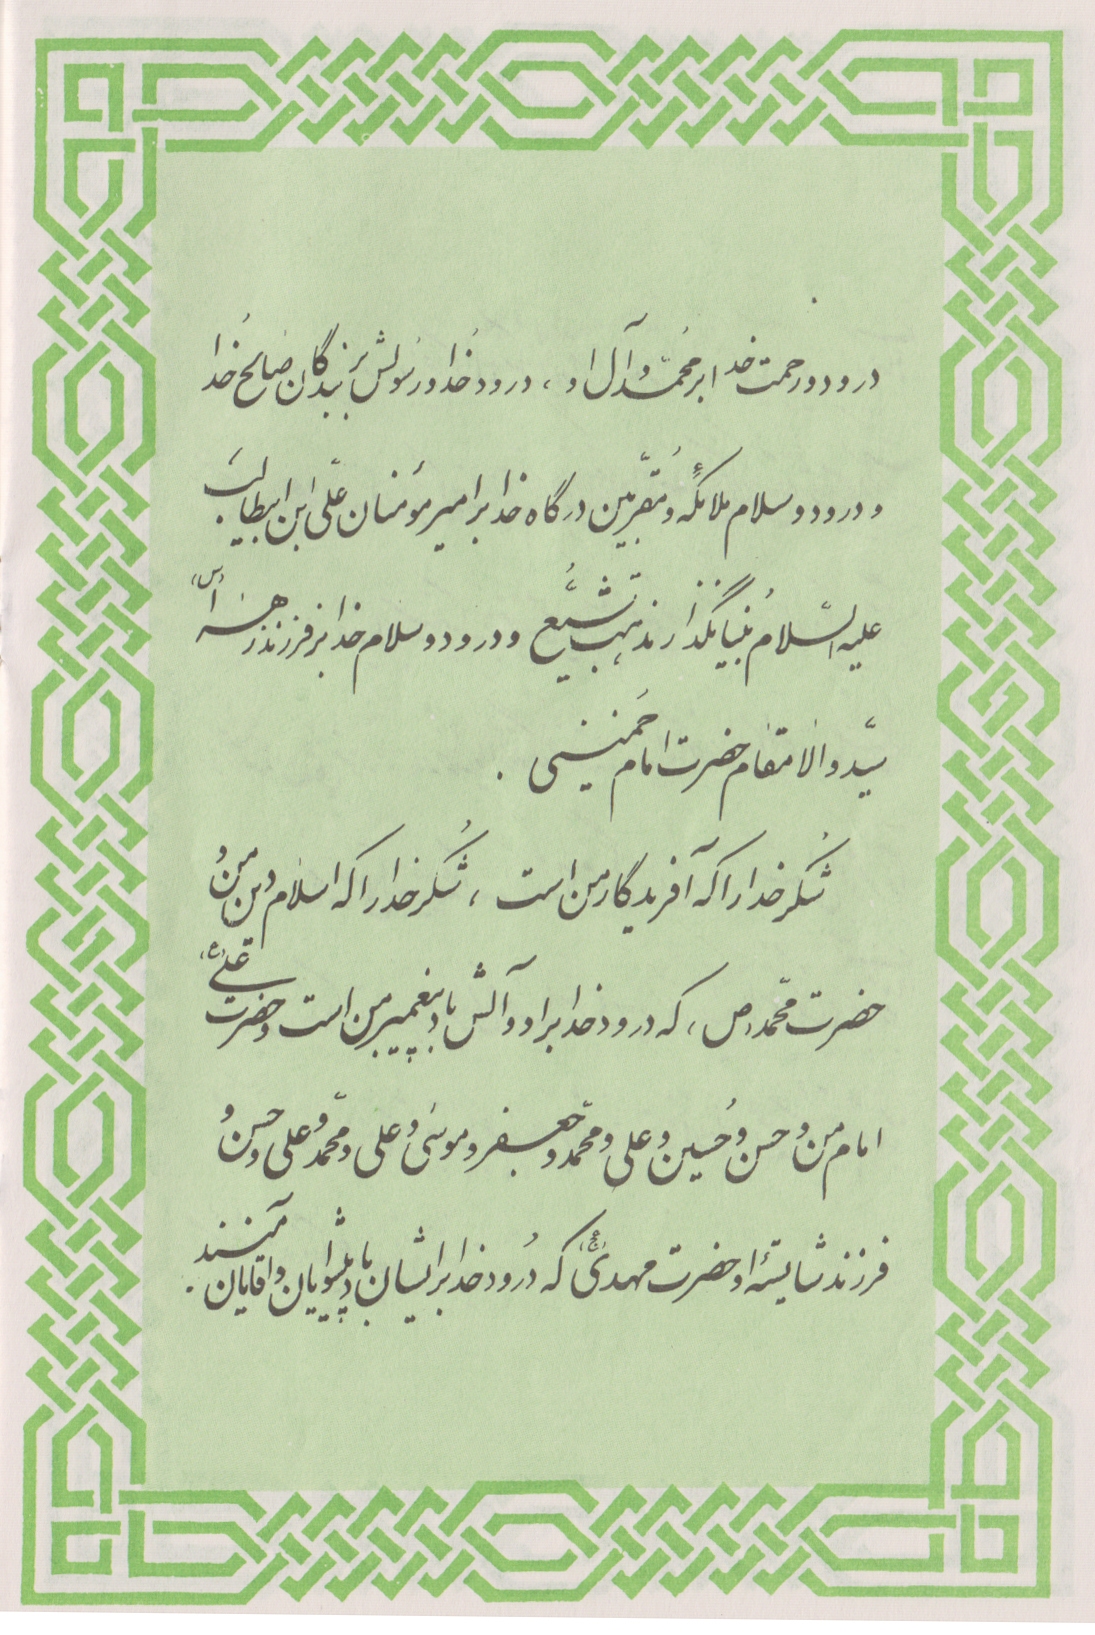 درود و رحمت خدا بر محمّد و آل او ، درود خدا و رسولش بر بندگان صالح خدا
و درود و سلام ملائکه و مقرّبین درگاه خدا بر امیر مؤمنان علّی ابن ابیطالب
علیه السّلام بنیانگذار مذهب تشیّع و درود و سلام خدا بر فرزند زهرا (س)
سیّد والا مقام حضرت امام خمینی .
شکر خدا را که آفریدگار من است ، شکر خدا را که اسلام دین من و
حضرت محمّد (ص) که درود خدا بر او و آلش باد پیغمبر من است و حضرت علی (ع)
امام من و حسن و حسین و علی و محمّد و جعفر و موسی و علی و محمّد و علی و حسن و
فرزند شایستهٔ او حضرت مهدی (عج) که درود خدا بر ایشان باد پیشوایان و آقایان منند .